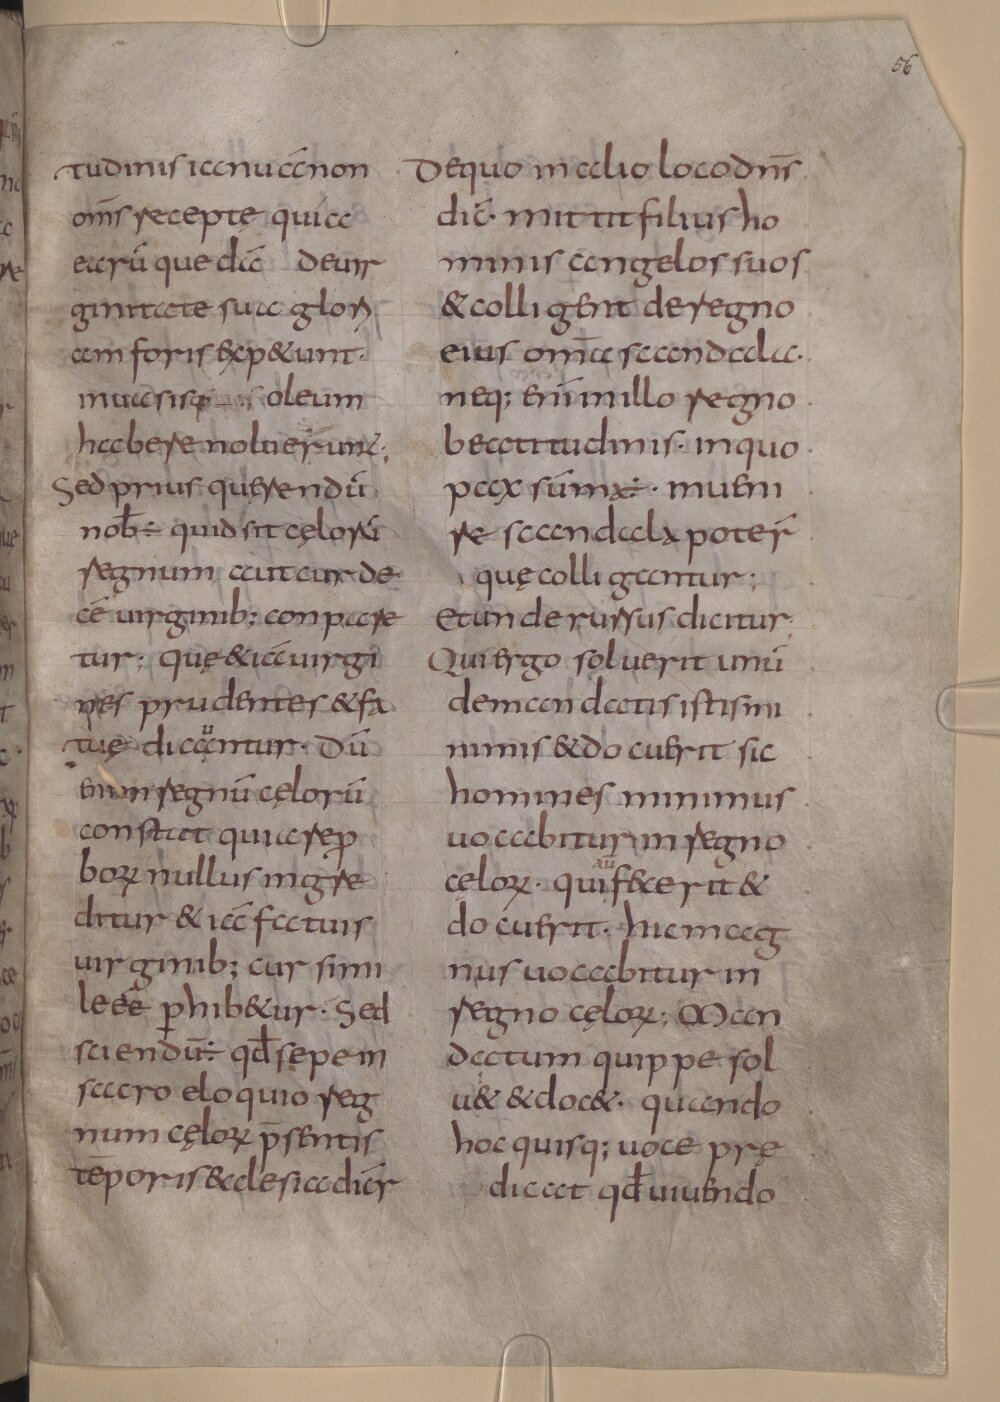 56
tudinis ianuā non
om̄s recepte̜ quia
earū que dā de uir
ginitate sua glori
am foris exp&unt.
in uasis oleum
habere noluerunt;
Sed prius que̜rendū
nob̄ ÷ quid sit ce̜lorū
regnum aut cur de
cē uirginib; conpare
tur; que̜ & iā uirgi
nes prudentes & fa
tue̜ dicantur. Dū
enim regnū ce̜lorū
constat quia rep̱
boꝝ nullus ingre
ditur & iā fatuis
uirginib; cur simi
le eē p̱hib&ur. Sed
sciendū ÷ qđ sepe in
sacro eloquio reg
num ce̜loꝝ p̄sentis
tēporis &cclesia dic̄r
De quo in alio loco dn̄s
dic̄. mittit filius ho
minis angelos suos
& colligent de regno
eius om̄ia scandala.
neq; enī in illo regno
beatitudinis. in quo
pax sūma ÷. inueni
re scandala poterī
que̜ colligantur;
Et unde rursus dicitur
Qui ergo soluerit unū
de mandatis istis mi
nimis & docuerit sic
homines minimus
uocabitur in regno
ce̜loꝝ. qui aū fecerit &
docuerit. hic mag
nus uocabitur in
regno ce̜loꝝ; Man
datum quippe sol
u& & doc&. quando
hoc quisq; uoce pre̜
dicat qđ uiuendo